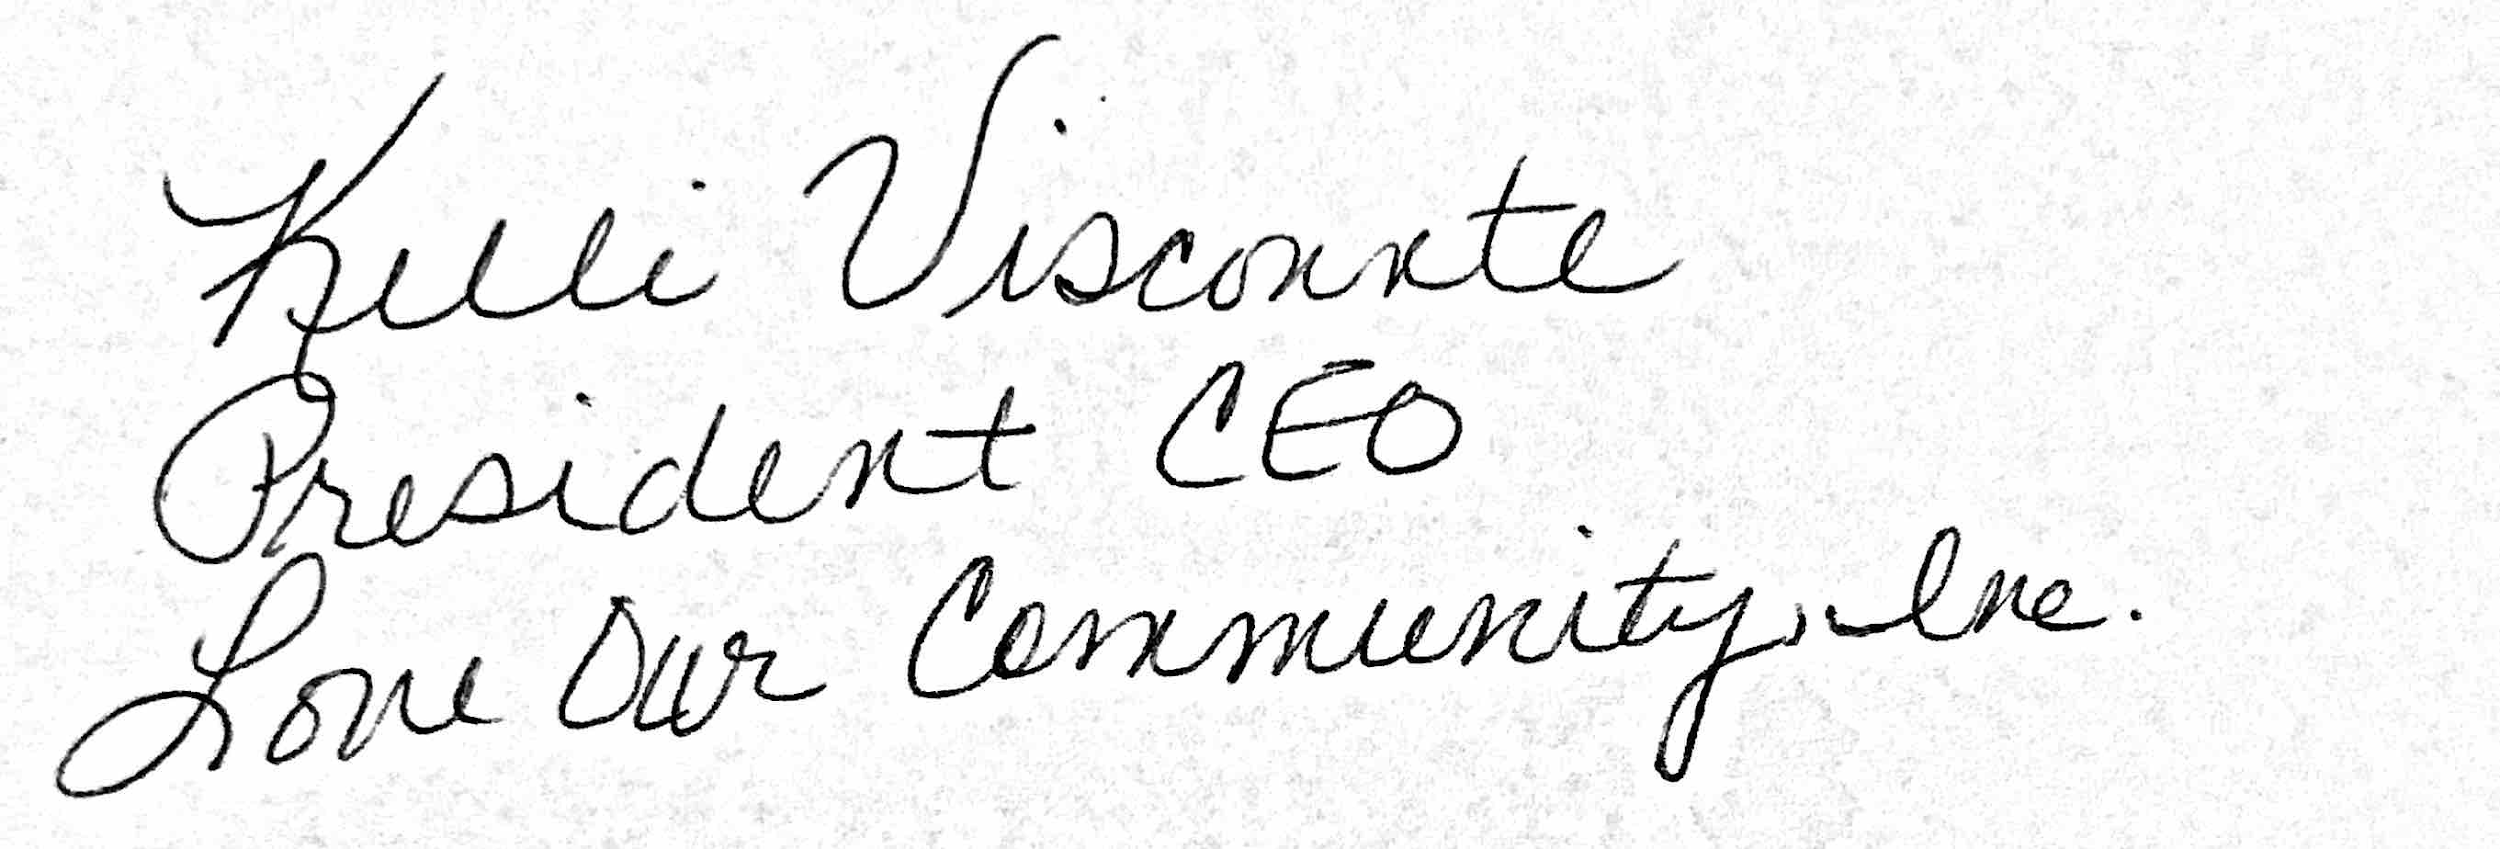 Kelli Visconte
President CEO
Love Our Community, Inc.